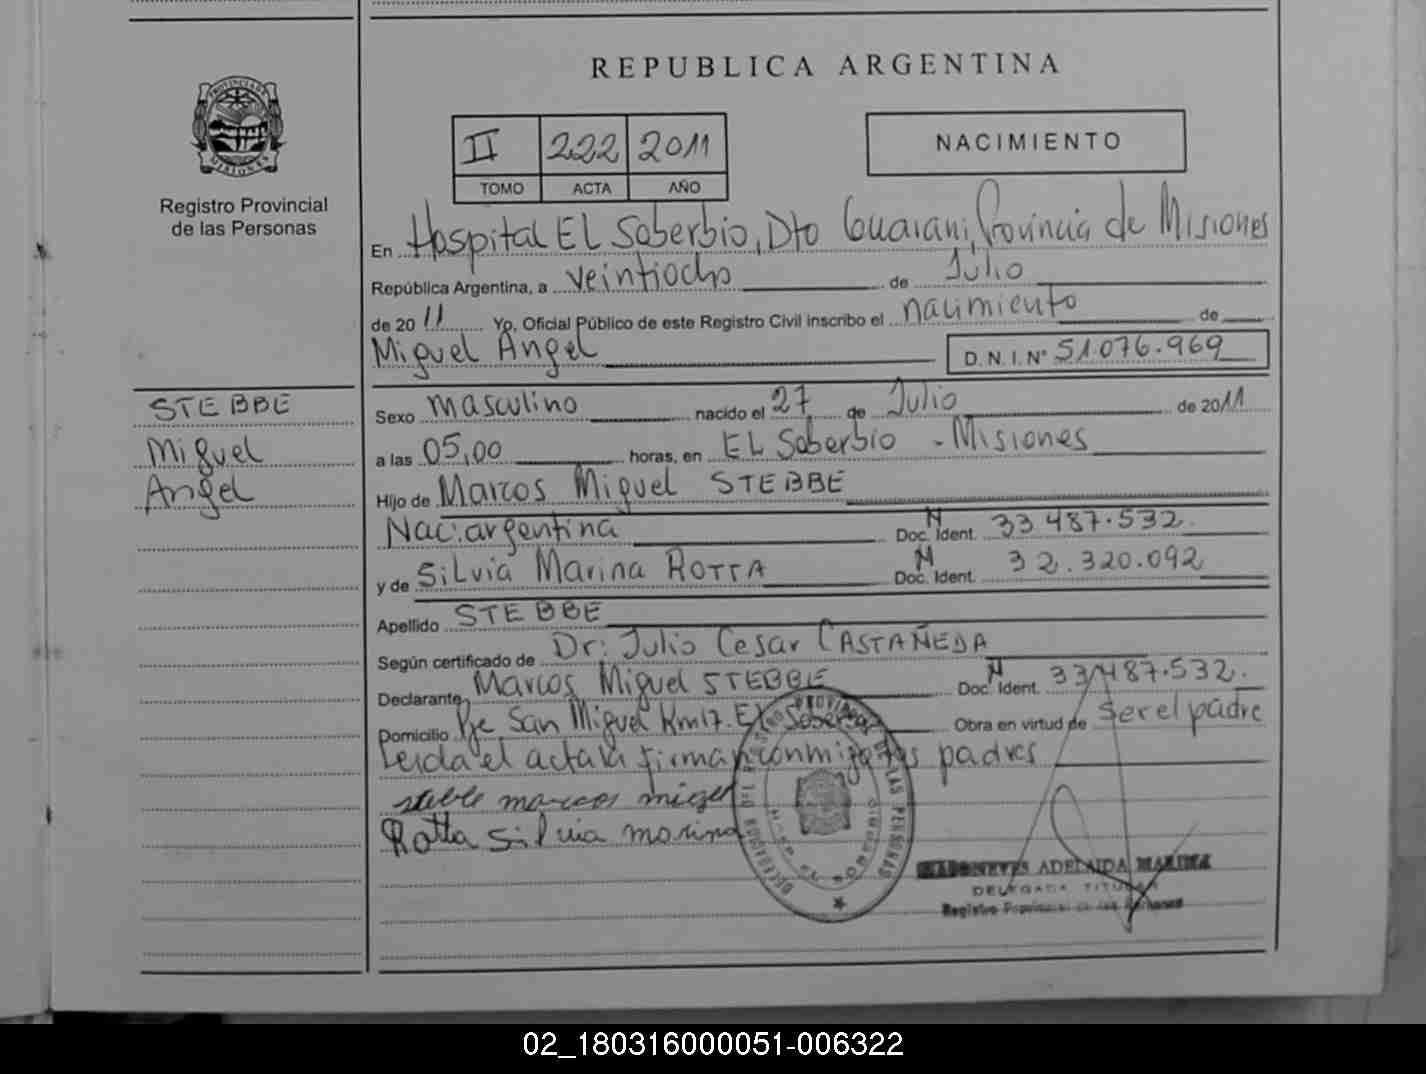 REPUBLICA ARGENTINA
PROVINCIA DE MISIONES
Registro Provincial
de las Personas
II 222 2011
TOMO ACTA AÑO
NACIMIENTO
En Hospital EL Soberbio, Dto Guarani, Provincia de Misiones
República Argentina, a veintiocho de Julio
de 2011 Yo, Oficial Público de este Registro Civil inscribo el nacimiento de
Miguel Angel D.N.I.Nº 51.076.969
STEBBE
Miguel
Angel
Sexo masculino nacido el 27 de Julio de 2011
a las 05,00 horas, en EL Soberbio - Misiones
Hijo de Marcos Miguel STEBBE
Nac: argentina Doc. Ident. 33.487.532
y de Silvia Marina ROTTA Doc. Ident. 32.320.092
Apellido STEBBE
Según certificado de Dr: Julio Cesar CASTAÑEDA
Declarante Marcos Miguel STEBBE Doc. Ident. 33.487.532.
Domicilio Pje San Miguel Km17. EL Soberbio Obra en virtud de ser el padre
Leida el acta la firman conmigo los padres
stebbe marcos miguel
Rotta Silvia marina
REGISTRO PROVINCIAL DE LAS PERSONAS
ADELAIDA MARINA
DELEGADA TITULAR
Registro Provincial de las Personas
02_180316000051-006322